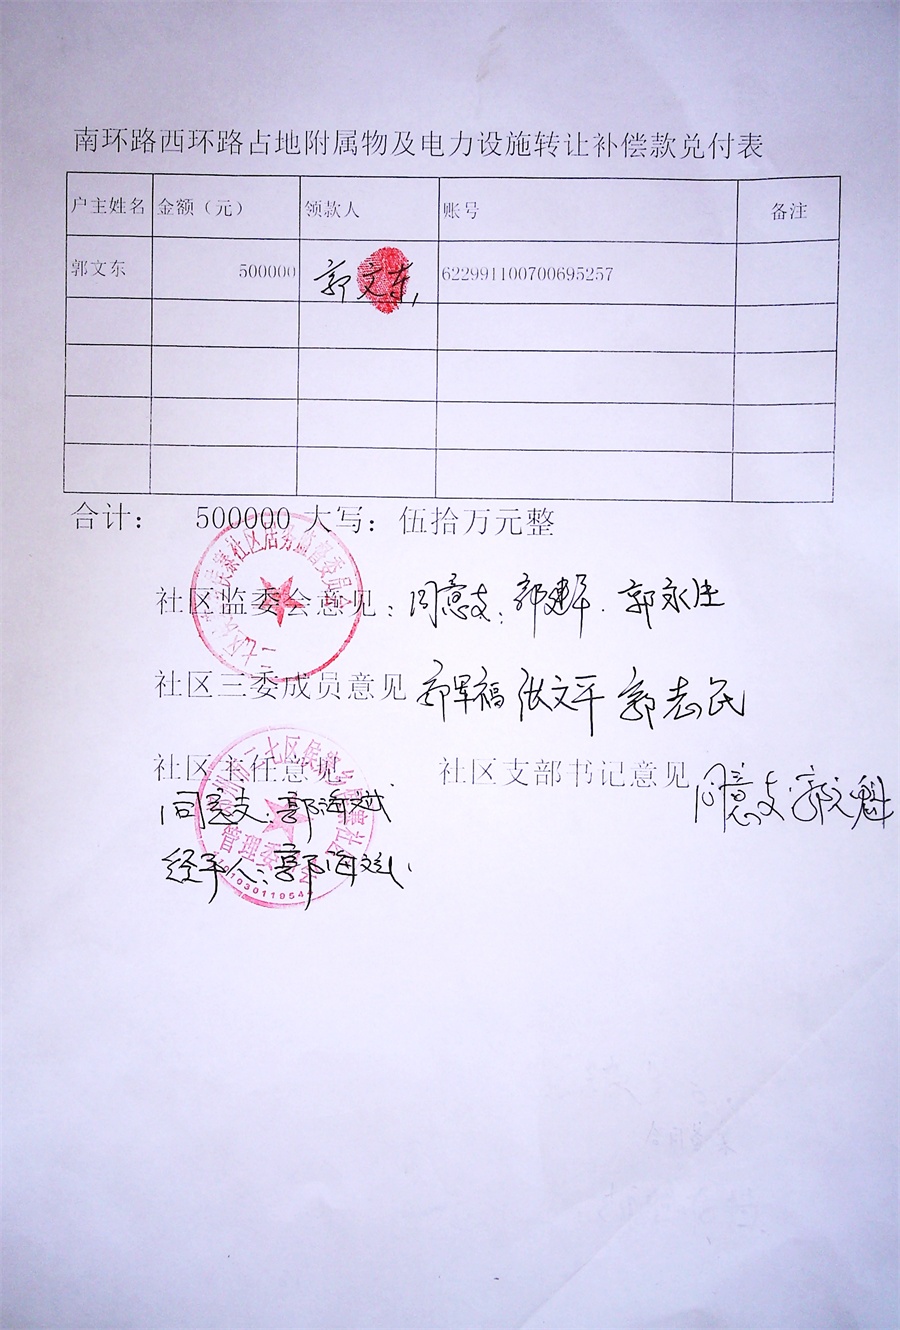 南环路西环路占地附属物及电力设施转让补偿款兑付表
户主姓名 金额（元） 领款人 账号 备注
郭文东 500000 郭文东 622991100700695257
合计： 500000 大写：伍拾万元整
社区监委会意见：同意支：郭建军．郭永生
社区三委成员意见 郭军福 张文平 郭志民
社区主任意见 社区支部书记意见 同意支
同意支：郭海斌
经手人：郭海斌